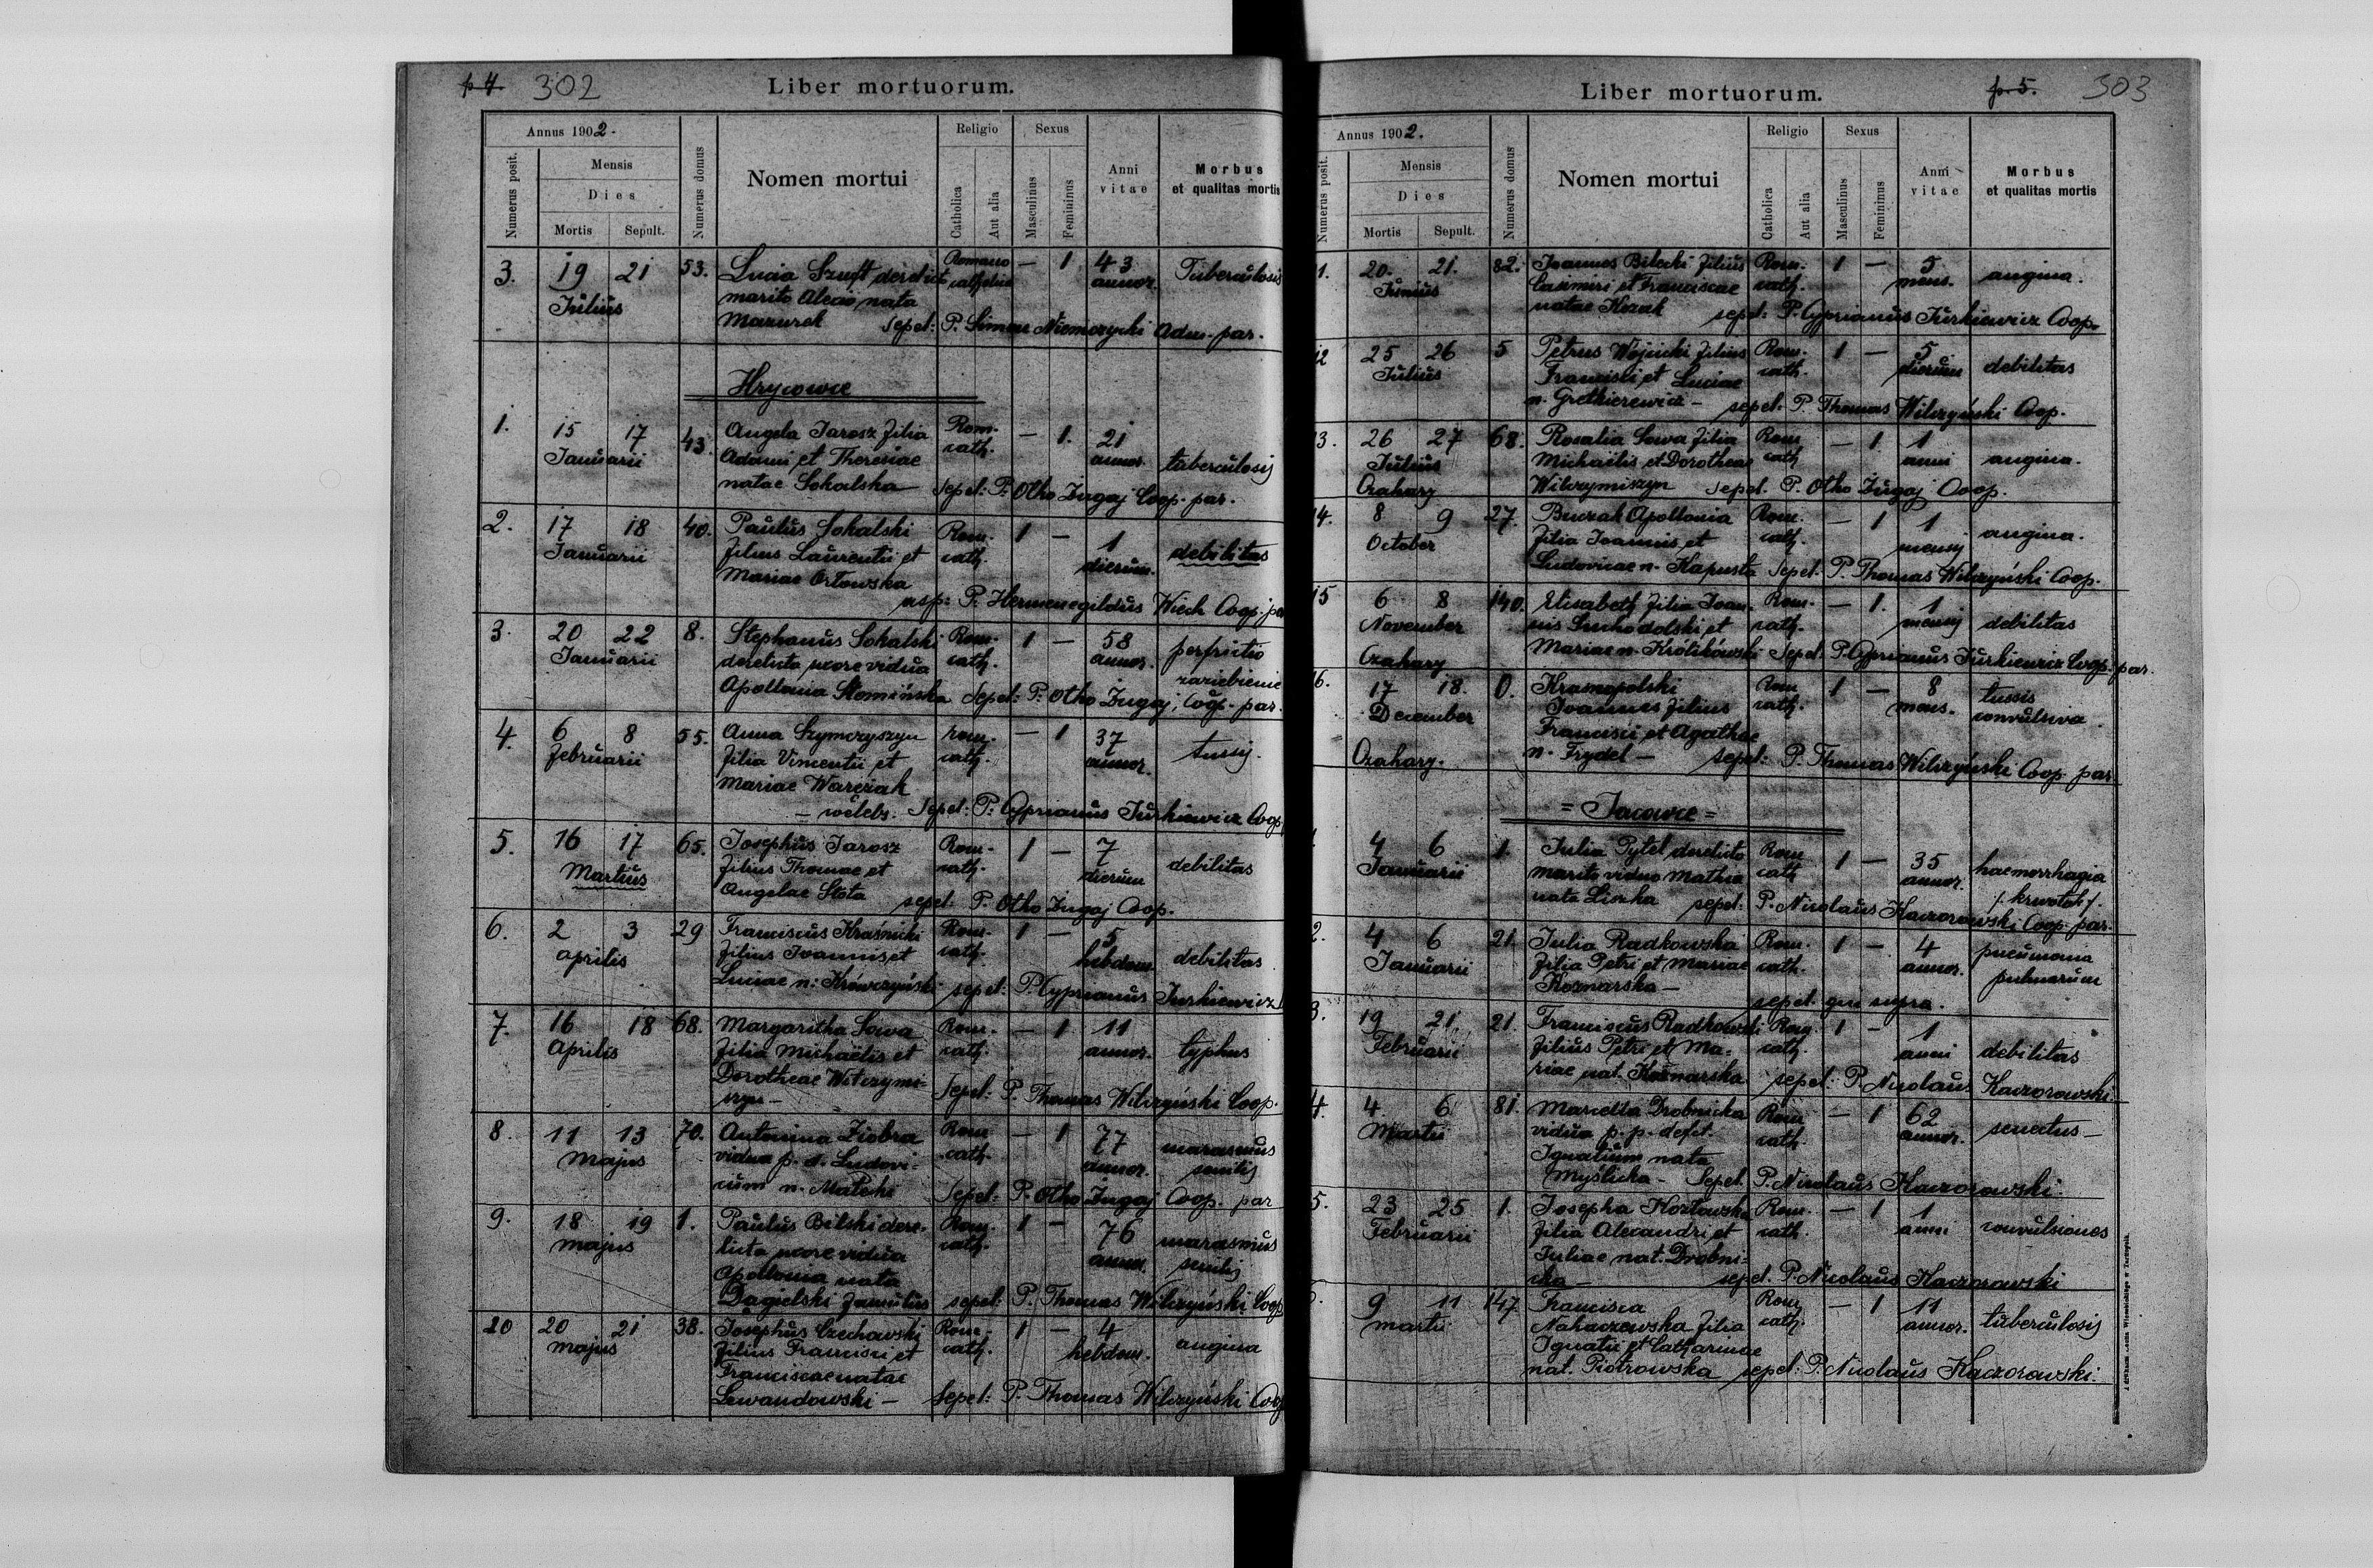 p 4 302
Liber mortuorum.
Annus 1902.
Numerus posit.
Mensis
Dies
Mortis Sepult.
Numerus domus
Nomen mortui
Religio
Catholica
Aut alia
Sexus
Masculinus
Femininus
Anni vitae
Morbus et qualitas mortis
3. 19 21 53. Lucia Szuft derelict Romano — 1 43 Tuberculosis
Julius marito Alexio nata catholica annor.
Mazurek sepel: P. Simon Niemczycki Adm. par.
Hrycowce
1. 15 17 43. Angela Jarosz filia Rom. — 1. 21
Januarii Adami et Theresiae cath. annor. tuberculosis
natae Sokalska Sepel: P. Otho Zugaj Coop. par.
2. 17 18 40. Paulus Sokalski Rom. 1 — 1 debilitas
Januarii filius Laurentii et cath. dierum.
Mariae Orłowska
P. Hermenegildus Wiech Coop. par
3. 20 22 8. Stephanus Sokalski Rom. 1 — 58 perfrictio
Januarii derelicta uxore vidua cath. annor. zaziebienie
Apollonia Słomińska Sepel: P. Otho Zugaj, Coop. par.
4. 6 8 55. Anna Szymczyszyn rom. — 1 37 tussis
Februarii filia Vincentii et cath. annor.
Mariae Warciak
— coelebs. Sepel: P. Cyprianus Jurkiewicz Coop
5. 16 17 65. Josephus Jarosz Rom. 1 — 7
Martius filius Thomae et cath. dierum debilitas
Angelae Słota sepel. P. Otho Zugaj Coop.
6. 2 3 29 Franciscus Krasnicki Rom. 1 — 5
aprilis filius Joannis et cath. hebdom. debilitas
Luciae n: Krówczyński sepel: P. Cyprianus Jurkiewicz
7. 16 18 68. Margaritha Sowa Rom. — 1 11
aprilis filia Michaëlis et cath. annor. typhus
Dorotheae Wilczymi-
szyn — Sepel: P. Thomas Wilczyński Coop.
8. 11 13 70. Antonina Ziobra Rom — 1 77 marasmus
majus vidua p. d. Ludovi- cath. annor. senilis
cum n. Małecki Sepel: P. Otho Zugaj Coop. par
9. 18 19 1. Paulus Bilski dere- Rom. 1 — 76 marasmus
majus licta uxore vidua cath. annor. senilis
Apollonia nata
Dagielski famulus sepel: P. Thomas Wilczyński Coop
10 20 21 38. Josephus Czechowski Rom. 1 — 4 angina
majus filius Francisci et cath. hebdom.
Franciscae natae
Lewandowski — Sepel: P. Thomas Wilczyński Coop
Liber mortuorum.
p. 5. 303
Annus 1902.
Numerus posit.
Mensis
Dies
Mortis Sepult.
Numerus domus
Nomen mortui
Religio
Catholica
Aut alia
Sexus
Masculinus
Femininus
Anni vitae
Morbus et qualitas mortis
1. 20. 21. 82. Joannes Bilecki filius Rom. 1 — 5 angina.
Junius Casimiri et Franciscae cath. mens.
natae Kozak sepel: P. Cyprianus Jurkiewicz Coop.
12 25 26 5 Petrus Wojcicki filius Rom. 1 — 5 debilitas
Julius Francisci et Luciae cath. dierum
n. Gretkierewicz — sepel. P. Thomas Wilczyński Coop.
3. 26 27 68. Rosalia Sowa filia Rom — 1 1
Julius Michaëlis et Dorotheae cath anni angina.
Czahary Wilczymiszyn sepel. P. Otho Zugaj Coop.
14. 8 9 27. Buczak Apollonia Rom. — 1 1 angina.
October filia Joannis et cath. mensis
Ludovicae n. Kapusta Sepel. P. Thomas Wilczyński Coop.
15 6 8 140. Elisabeth filia Joan- Rom. — 1. 1
November nis Suchodolski et cath. mensis debilitas
Czahary Mariae n. Krolikowski Sepel. P. Cyprianus Jurkiewicz Coop. par.
16. 17 18. 0. Krasnopolski Rom 1 — 8 tussis
December Joannes filius cath. mens. convulsiva
Francisci et Agathae
Czahary. n. Frydel — sepel: P. Thomas Wilczyński Coop. par
= Jacowce =
4 6 1. Julia Pytel derelicto Rom 1 — 35 haemorrhagia
Januarii marito viduo Mathia cath annor. /. krwotok /.
nata Liszka sepel: P. Nicolaus Kaczorowski Coop. par.
2. 4 6 21. Julia Radkowska Rom. 1 — 4 pneumonia
Januarii filia Petri et Mariae cath. annor. pulmorum
Koznarska — sepel. qui supra.
3. 19 21 21. Franciscus Radkowski Rom. 1 — 1
Februarii filius Petri et Ma- cath. anni debilitas
riae nat. Koznarska sepel: P. Nicolaus Kaczorowski
4. 4. 6 81. Marcella Drobnicka Rom — 1 62 senectus —
Martii vidua p. p. defct. cath. annor.
Ignatium nata
Myślicka — Sepel. P. Nicolaus Kaczorowski.
5. 23 25 1. Josepha Kozłowska Rom. — 1 1
Februarii filia Alexandri et cath. anni convulsiones
Juliae nat. Drobni-
cka — sepel. P. Nicolaus Kaczorowski
9 11 147. Francisca Rom — 1 11
martii Nakaczewska filia cath. annor. tuberculosis
Ignatii et Catharinae
nat. Piotrowska sepel: P. Nicolaus Kaczorowski.